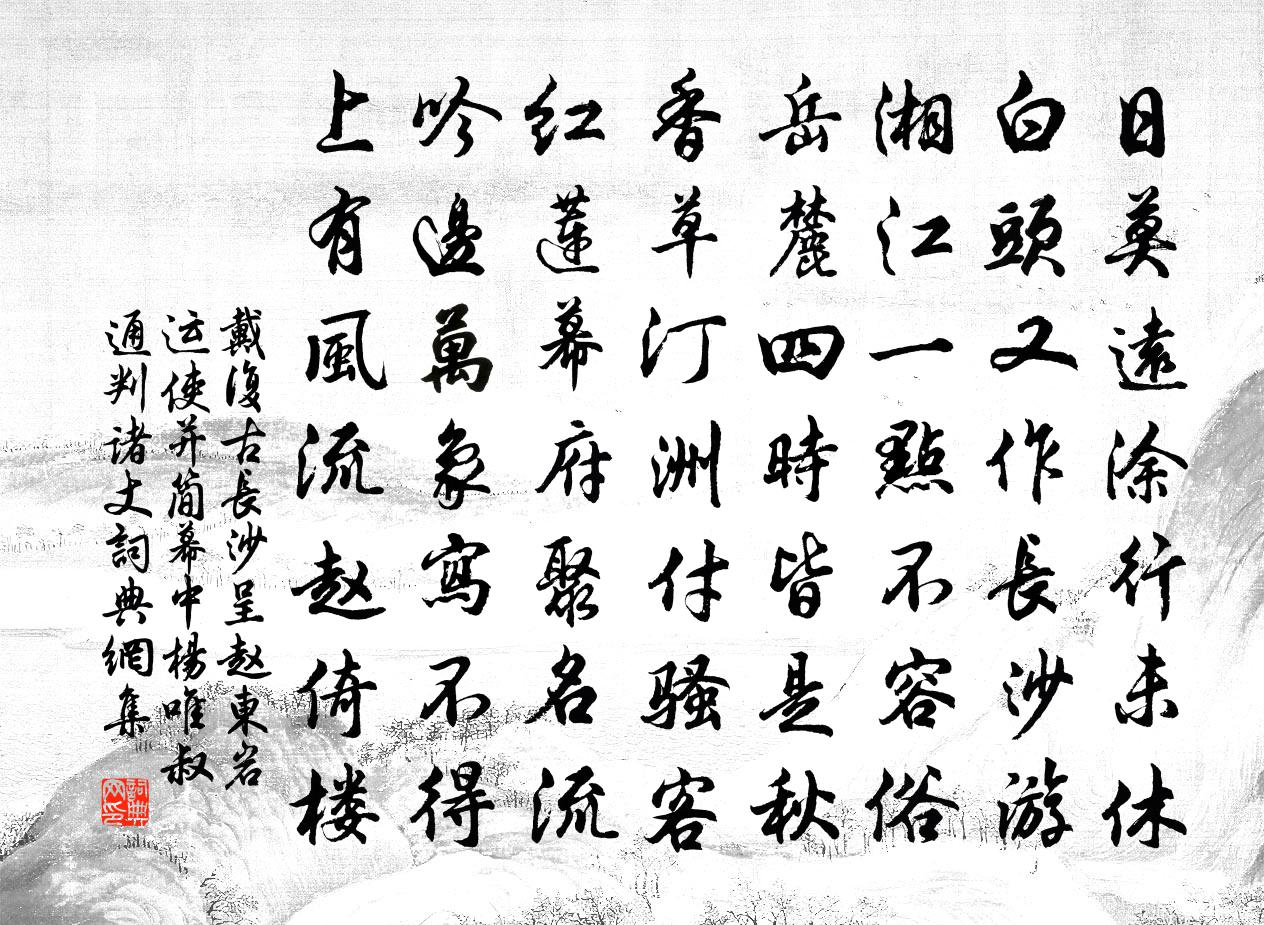 日莫遠涂行未休
白頭又作長沙游
湘江一點不容俗
岳麓四時皆是秋
香草汀洲付騷客
红蓮幕府聚名流
吟邊萬象寫不得
上有風流赵倚楼
戴復古長沙呈赵東岩
运使并简幕中楊唯叔
通判诸丈詞典網集
詞典网印